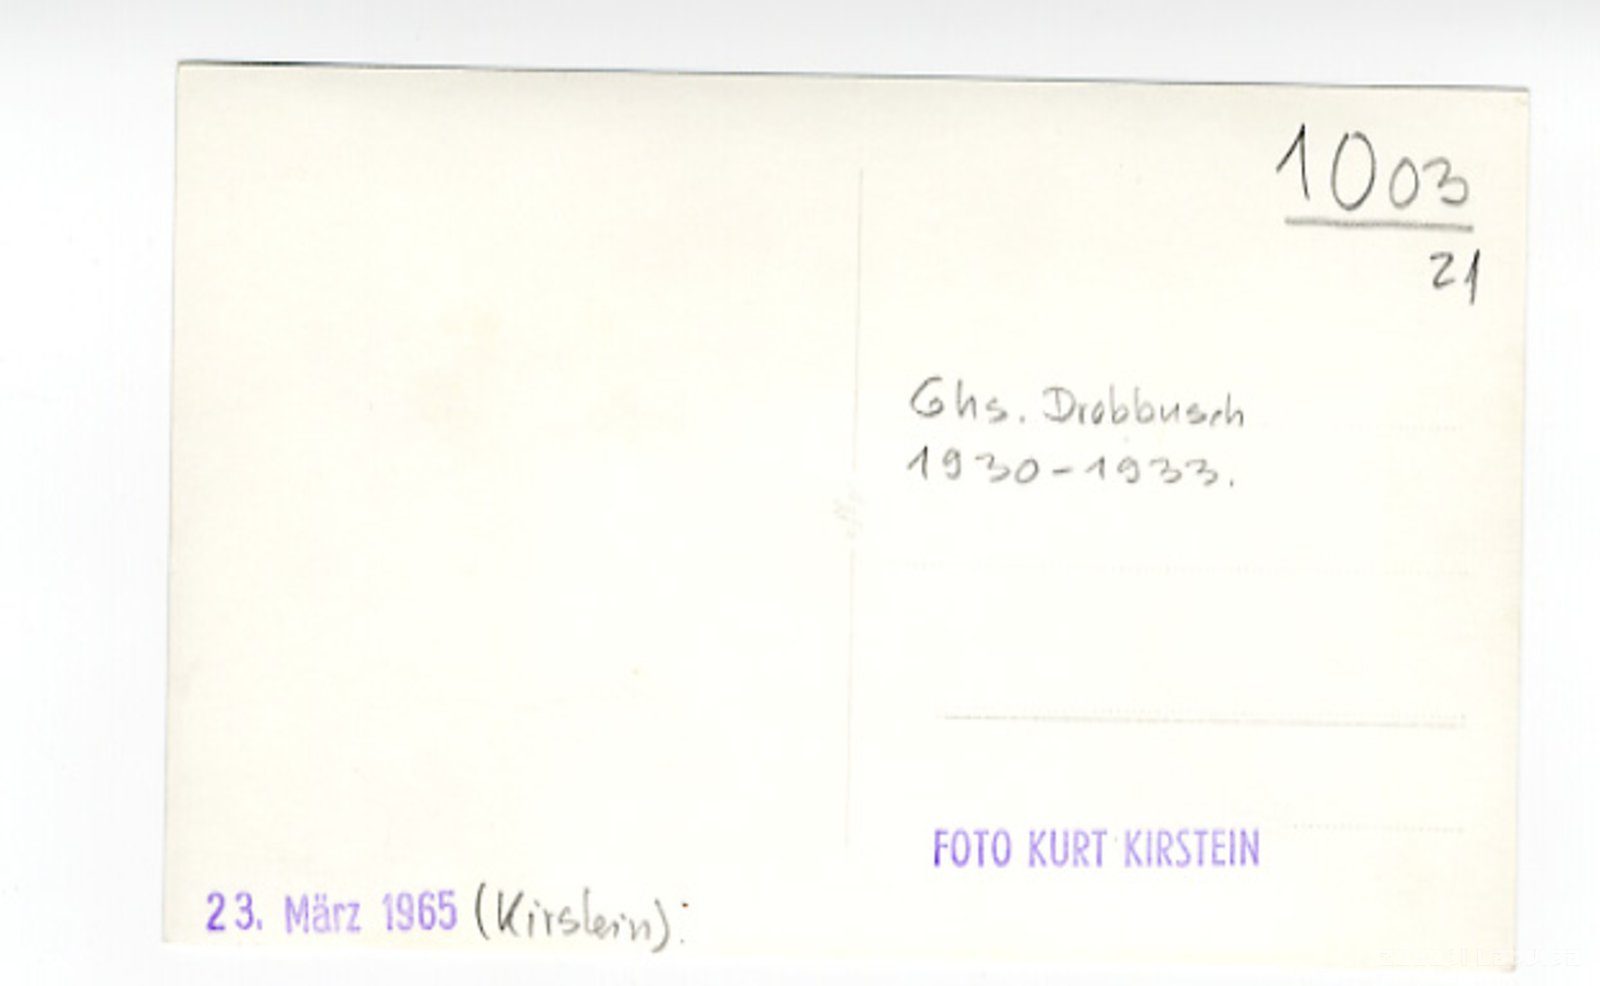 1003
21
Ghs. Drobbusch
1930-1933.
FOTO KURT KIRSTEIN
23. März 1965 (Kirstein):